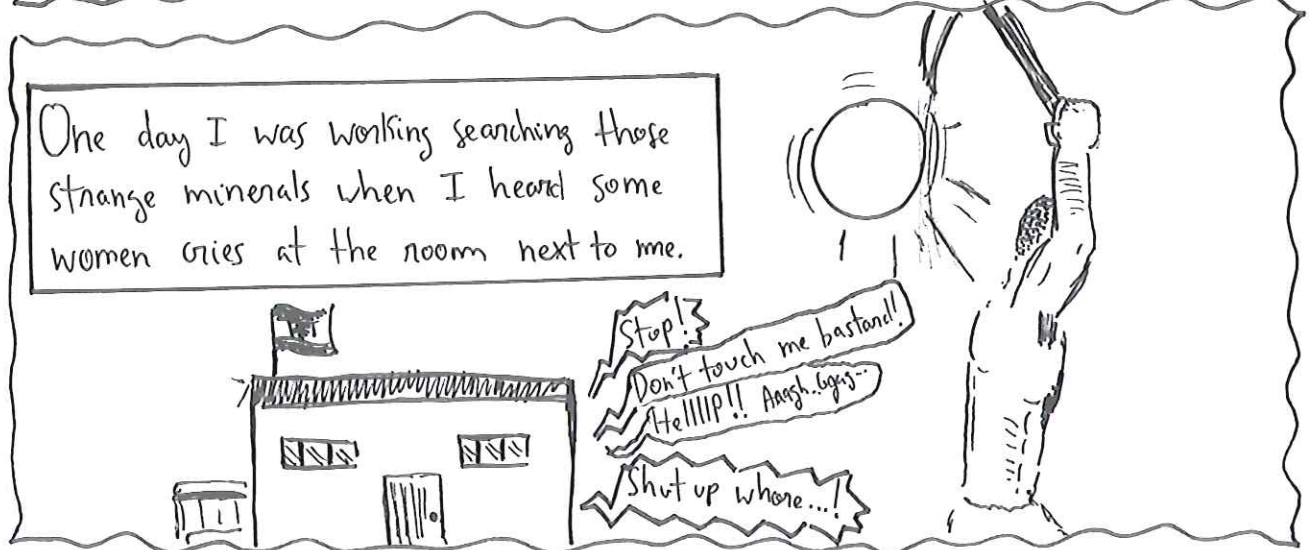 One day I was working searching those
strange minerals when I heard some
women cries at the room next to me.
Stop!
Don't touch me bastard!
Hellllp!! Aaagh..Ggag...
Shut up whore...!